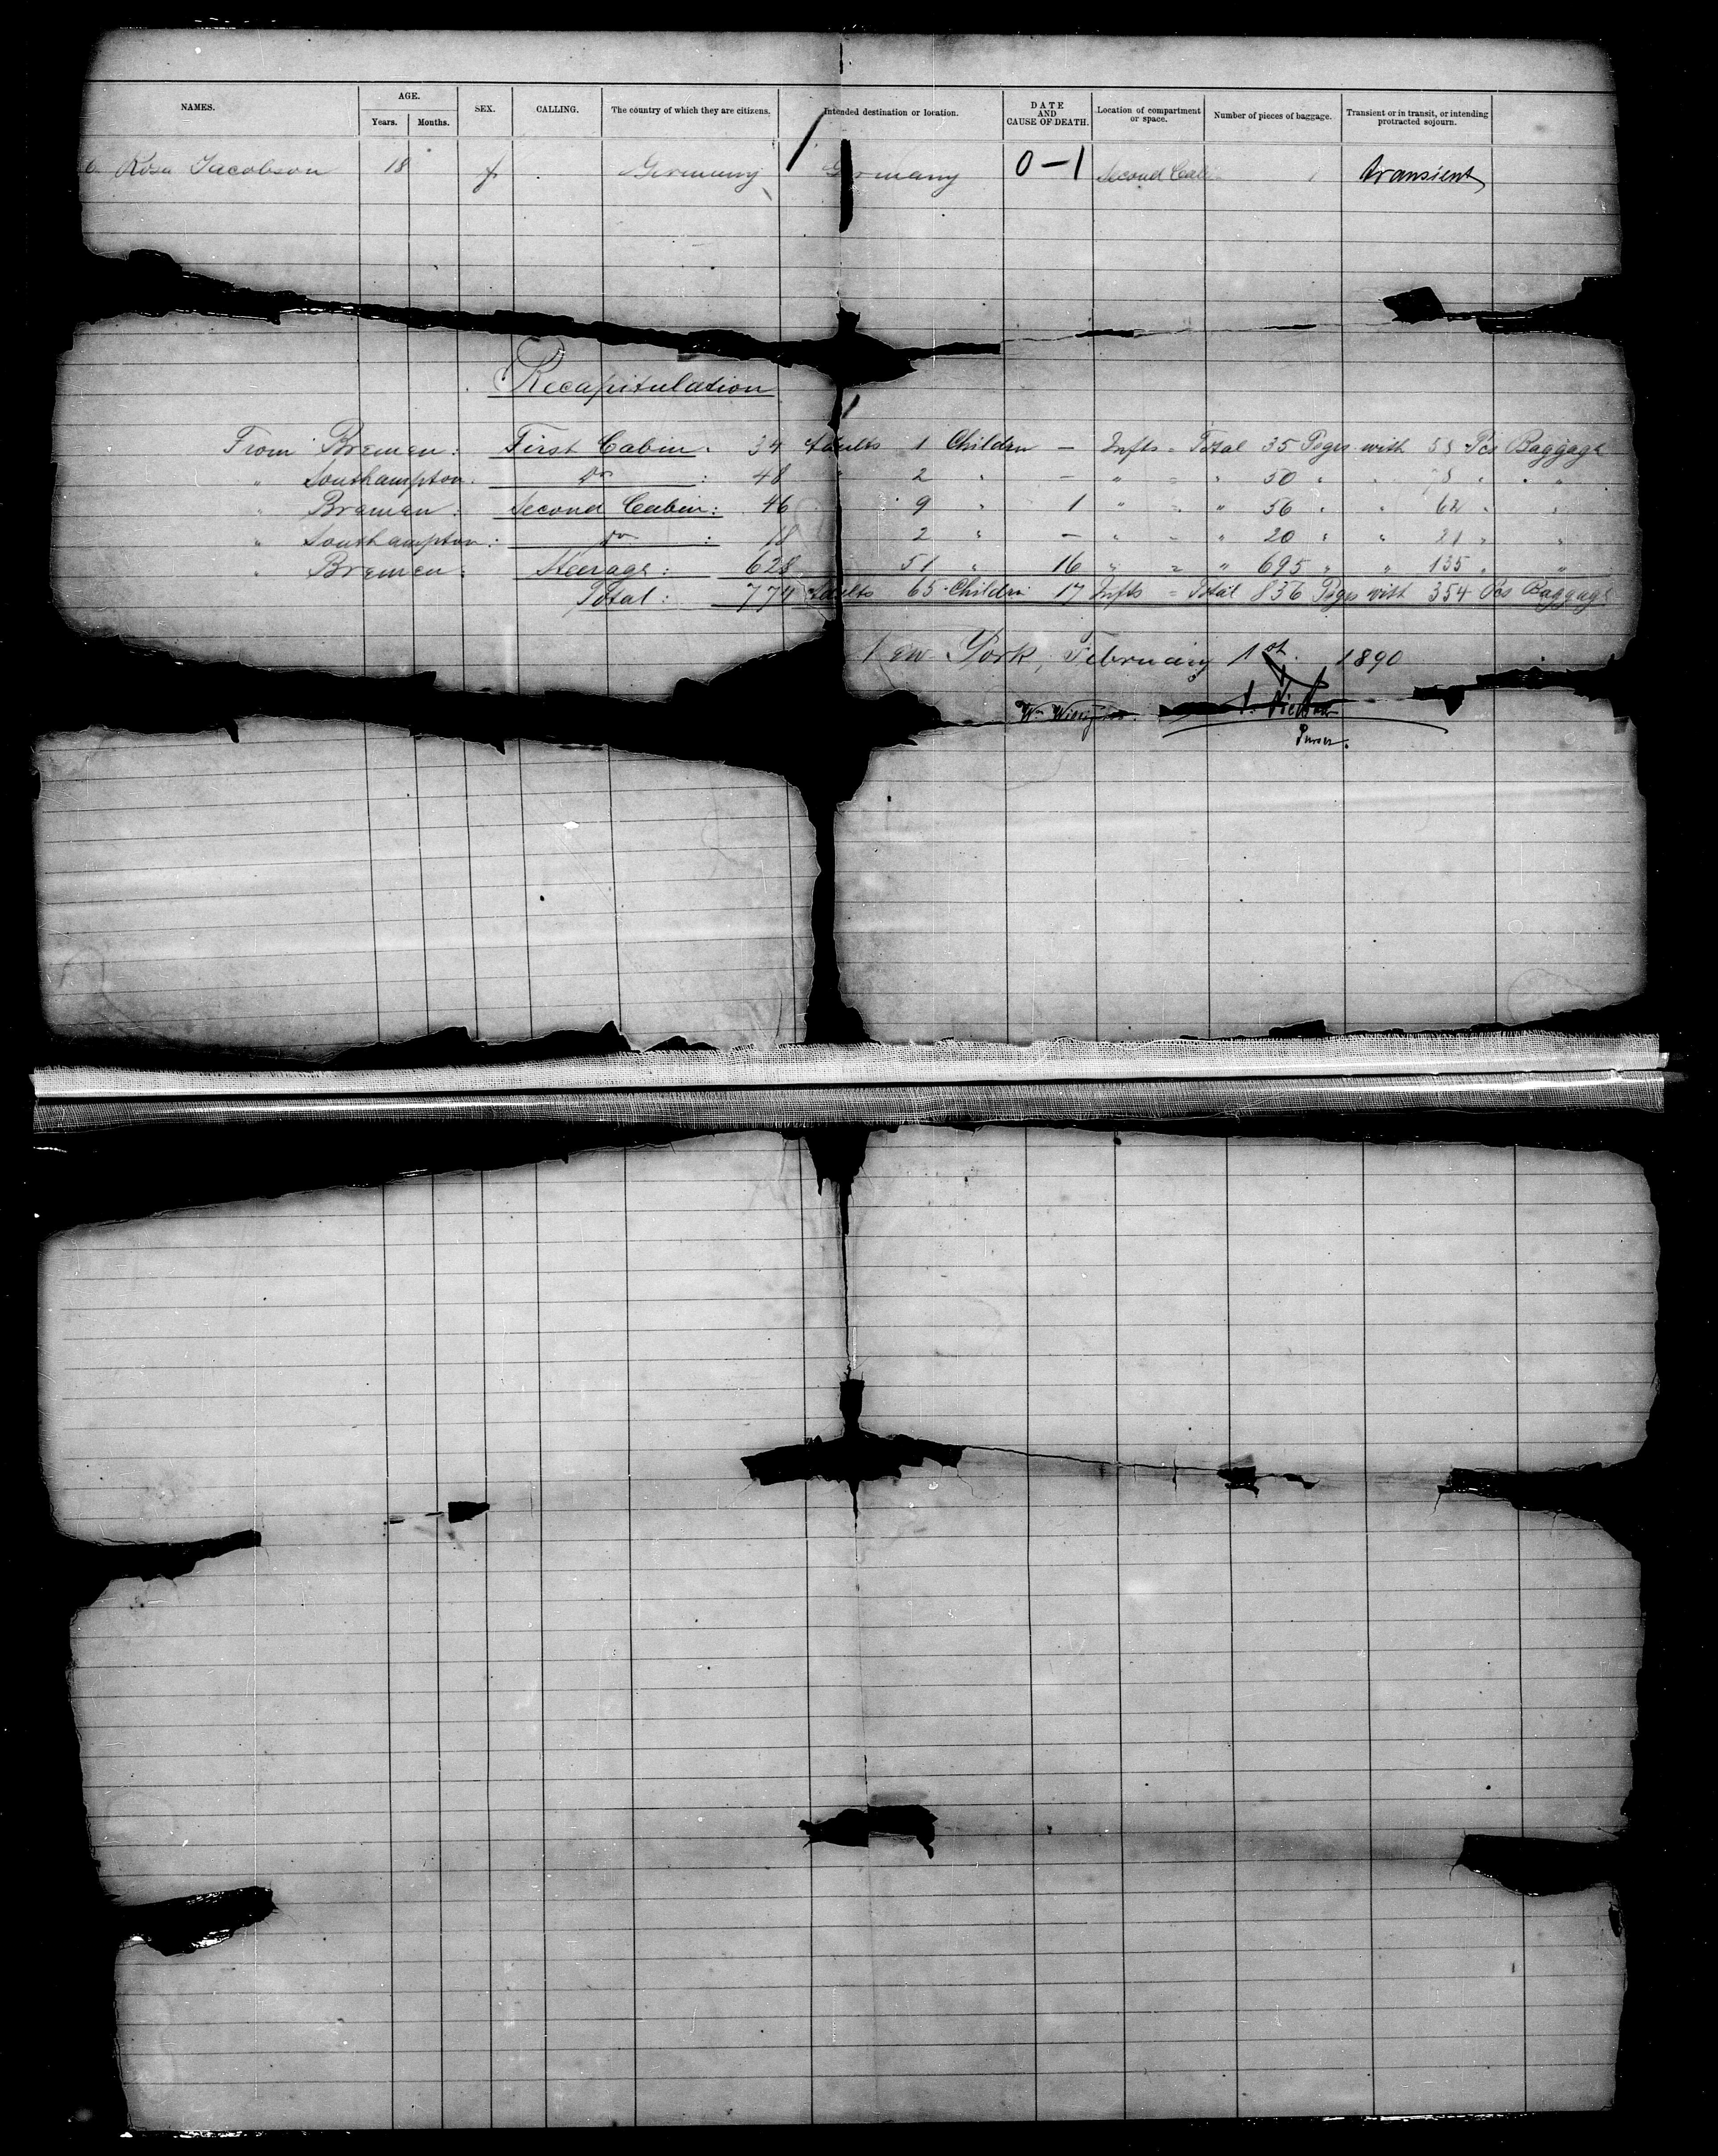 NAMES. AGE. Years. Months. SEX. CALLING. The country of which they are citizens. Intended destination or location. DATE AND CAUSE OF DEATH. Location of compartment or space. Number of pieces of baggage. Transient or in transit, or intending protracted sojourn.
Rosa Jacobson 18 f Germany Germany 0-1 Second Cab 1 transient
Recapitulation
From Bremen: First Cabin. 34 Adults 1 Children — Infts = Total 35 Pegrs with 58 Pcs Baggage
" Southampton. do : 48 " 2 " — " = " 50 " " 78 " "
" Bremen: Second Cabin: 46 9 " 1 " = " 56 " " 62 " "
" Southampton: do : 18 2 " — " = " 20 " " 21 " "
" Bremen: Steerage: 628 51 " 16 " = " 695 " " 135 " "
Total: 774 Adults 65 Children 17 Infts = Total 856 Pegrs with 354 Pcs Baggage
New York, February 1st. 1890
Purser.